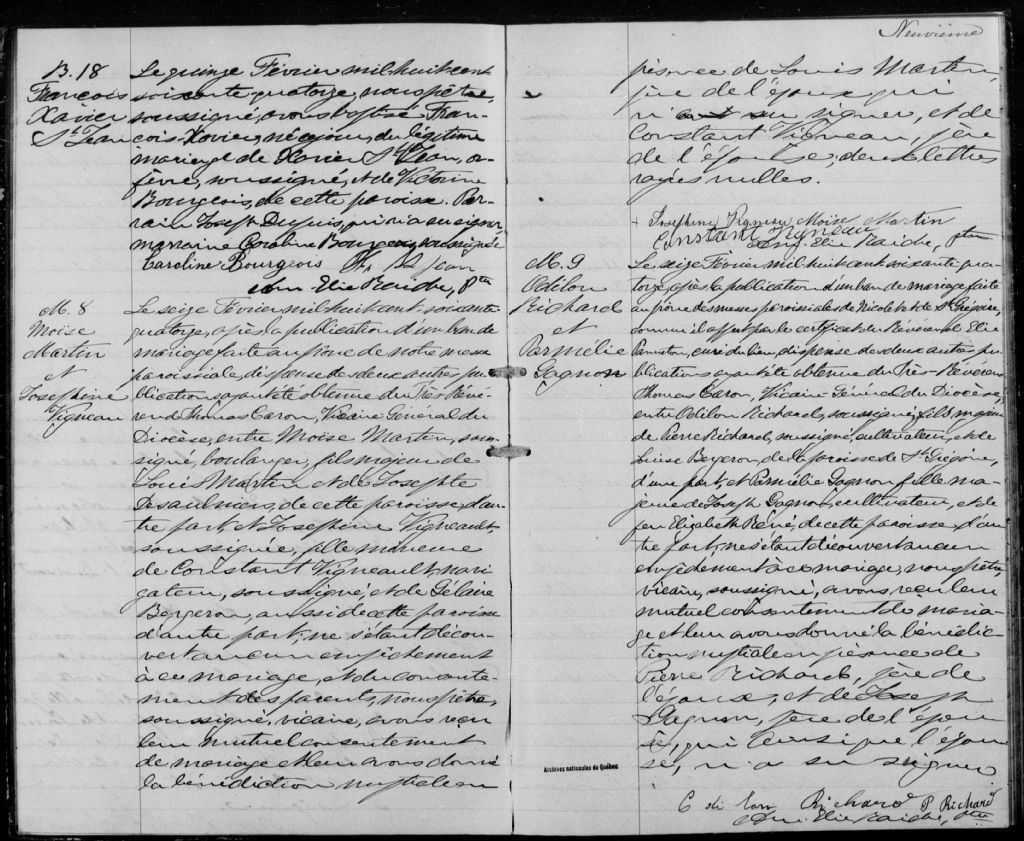 B. 18
François
Xavier
St Jean
Le quinze Février mil huit cent
soixante quatorze, nous prêtre,
soussigné, avons baptisé Fran-
çois Xavier, né ce jour, du légitime
mariage de Xavier St Jean, or-
fèvre, soussigné, et de Victorine
Bourgeois, de cette paroisse. Par-
rain Joseph Dupuis, qui n'a su signer,
marraine Caroline Bourgeois soussignée
Caroline Bourgeois X. St Jean
Elie Raiche, Ptre
M. 8
Moïse
Martin
et
Josephine
Vigneau
Le seize Février mil huit cent soixante
quatorze, après la publication d'un ban de
mariage faite au prône de notre messe
paroissiale, dispense des deux autres pu-
blications ayant été obtenue du Très-Révé-
rend Thomas Caron, Vicaire Général du
Diocèse, entre Moïse Martin, sous-
signé, boulanger, fils majeur de
Louis Martin et de Josephte
Desaulniers, de cette paroisse, d'au-
tre part, et Josephine Vigneault,
soussignée, fille mineure
de Constant Vigneault, navi-
gateur, soussigné, et de Gélaire
Bergeron, aussi de cette paroisse
d'autre part; ne s'étant décou-
vert aucun empêchement
à ce mariage, et du consente-
ment des parents, nous prêtre,
soussigné, vicaire, avons reçu
leur mutuel consentement
de mariage et leur avons donné
la bénédiction nuptiale en
Neuvième
présence de Louis Martin,
père de l'époux qui
n'a su signer, et de
Constant Vigneau, père
de l'épouse; deux lettres
rayées nulles.
Josephine Vigneau Moïse Martin
Constant Vigneau
Elie Raiche, Ptre
M. 9
Odilon
Richard
et
Parmélie
Gagnon
Le seize Février mil huit cent soixante qua-
torze, après la publication d'un ban de mariage faite
au prône des messes paroissiales de Nicolet et de St Grégoire,
comme il appert par le certificat du Révérend Elie
Panneton, curé du lieu, dispense des deux autres pu-
blications ayant été obtenue du Très-Révérend
Thomas Caron, Vicaire Général du Diocèse,
entre Odilon Richard, soussigné, fils majeur
de Pierre Richard, soussigné, cultivateur, et de
Louise Bergeron, de la paroisse de St Grégoire,
d'une part, et Parmélie Gagnon fille ma-
jeure de Joseph Gagnon, cultivateur, et de
feu Elizabeth René, de cette paroisse d'au-
tre part; ne s'étant découvert aucun
empêchement à ce mariage, nous prêtre,
vicaire, soussigné, avons reçu leur
mutuel consentement de maria-
ge et leur avons donné la bénédic-
tion nuptiale en présence de
Pierre Richard, père de
l'époux, et de Joseph
Gagnon, père de l'épou-
se, qui ainsi que l'épou-
se, n'a su signer
Odilon Richard P Richard
Elie Raiche, Ptre
Archives nationales du Québec